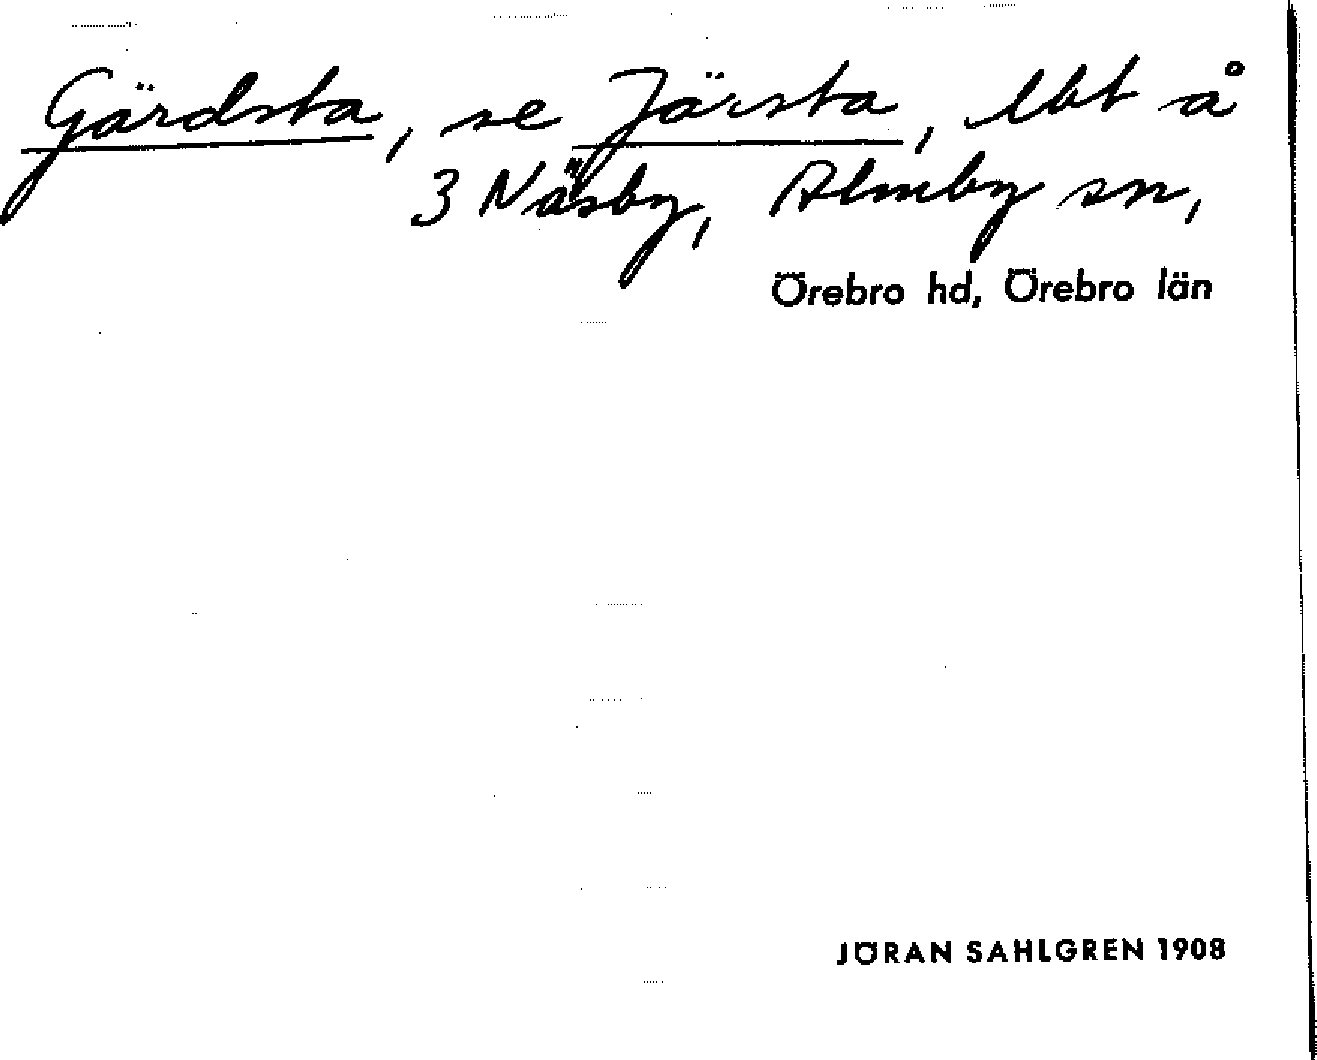 Gärdsta, se Järsta, lbt å
3 Näsby, Almby sn,
Örebro hd, Örebro län
JÖRAN SAHLGREN 1908